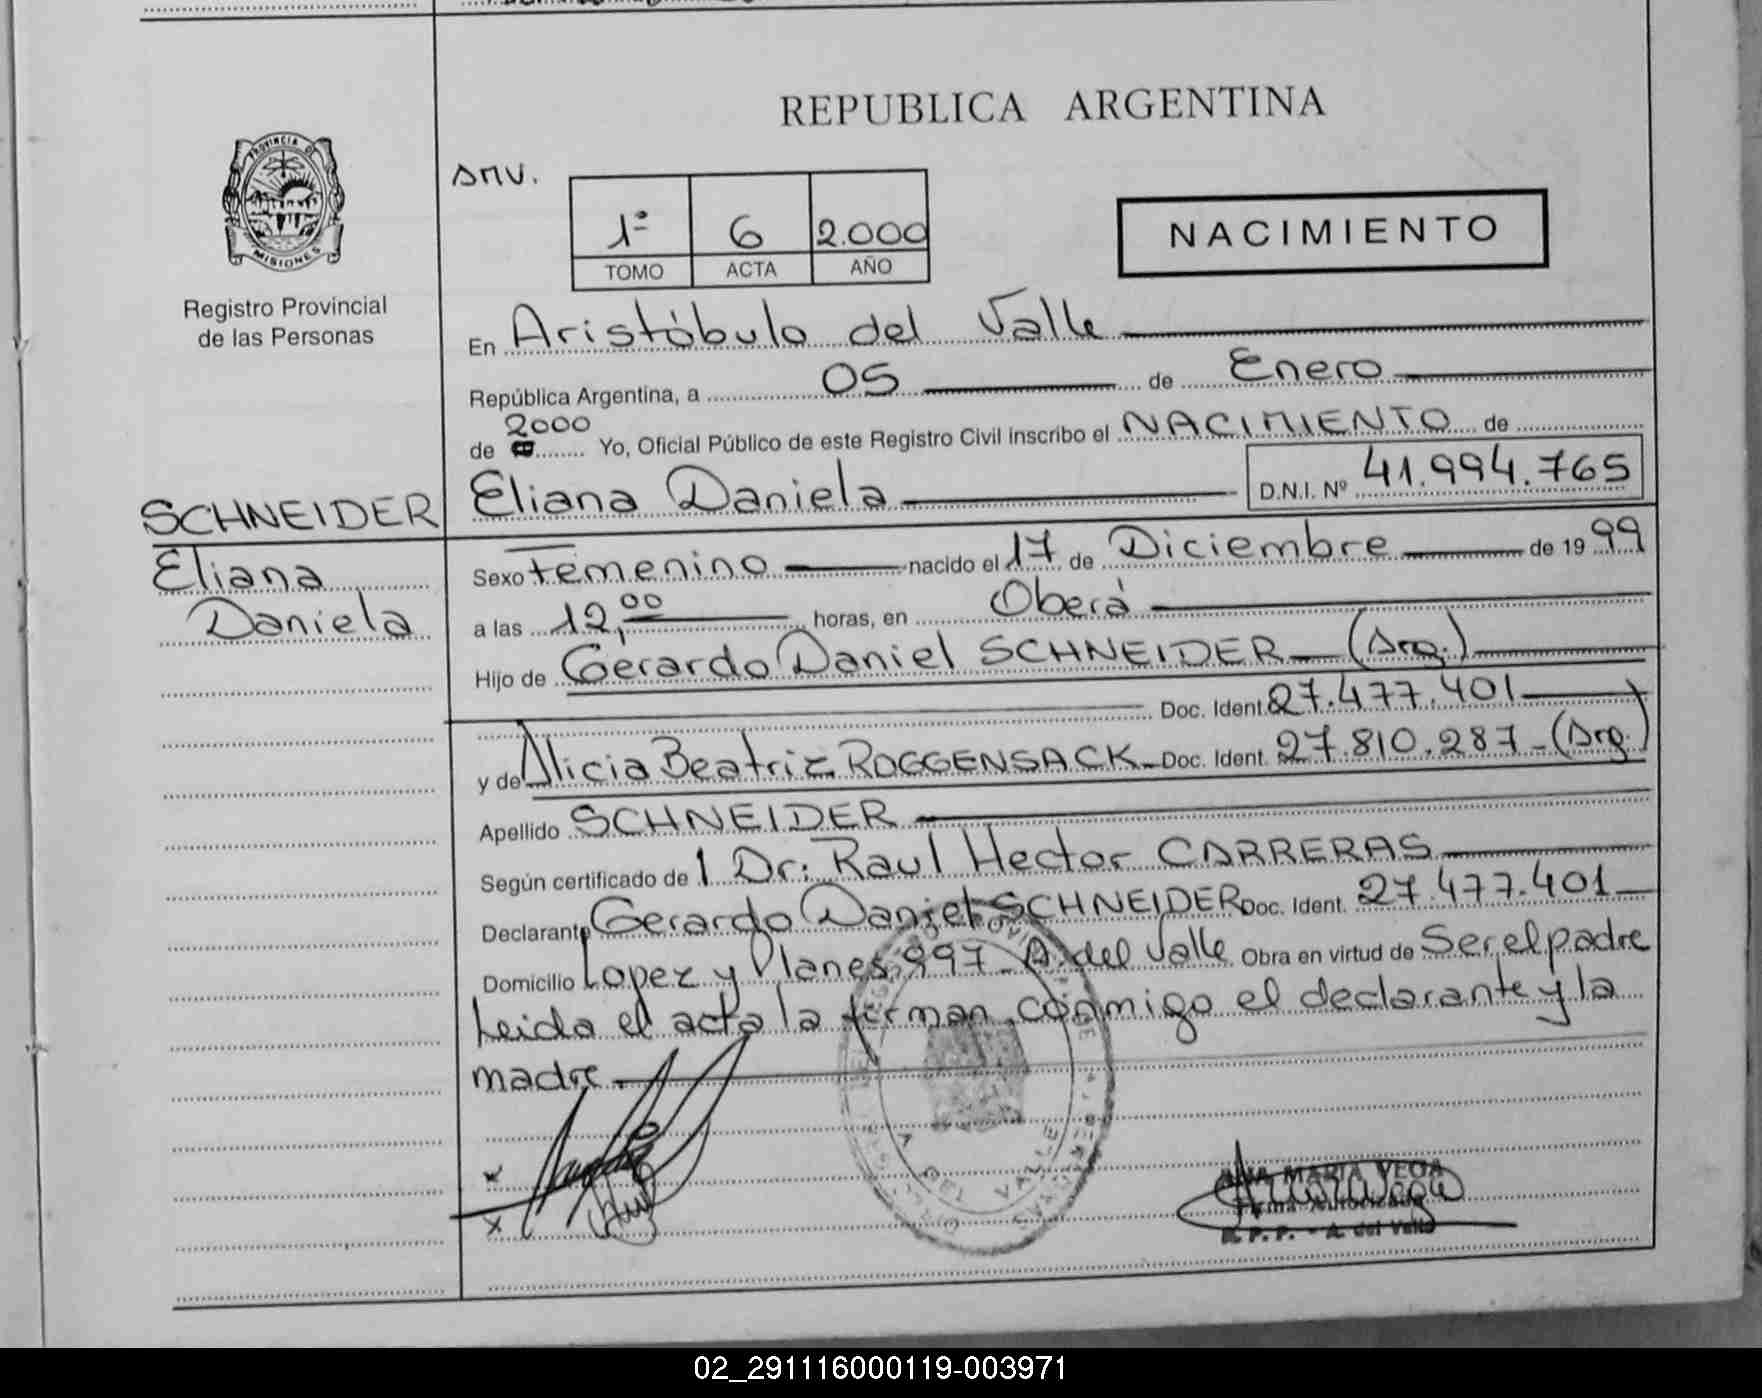 REPUBLICA ARGENTINA
PROVINCIA DE MISIONES
Registro Provincial
de las Personas
1º 6 2.000
TOMO ACTA AÑO
NACIMIENTO
En Aristóbulo del Valle
República Argentina, a 05 de Enero
de 2000 Yo, Oficial Público de este Registro Civil inscribo el NACIMIENTO de
SCHNEIDER
Eliana
Daniela
Eliana Daniela D.N.I. Nº 41.994.765
Sexo Femenino nacido el 17 de Diciembre de 19 99
a las 12,00 horas, en Oberá
Hijo de Gerardo Daniel SCHNEIDER (Arg.)
Doc. Ident. 27.477.401
y de Alicia Beatriz ROGGENSACK Doc. Ident. 27.810.287 - (Arg.)
Apellido SCHNEIDER
Según certificado de l Dr. Raul Hector CARRERAS
Declarante Gerardo Daniel SCHNEIDER Doc. Ident. 27.477.401
Domicilio Lopez y Planes 997 - A. del Valle Obra en virtud de Ser el padre
Leida el acta la firman conmigo el declarante y la
madre
DEL VALLE
ANA MARIA VEGA
Firma Autorizada
R. P. P. - A. del Valle
02_291116000119-003971